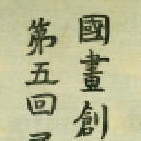 國畫創
第五回